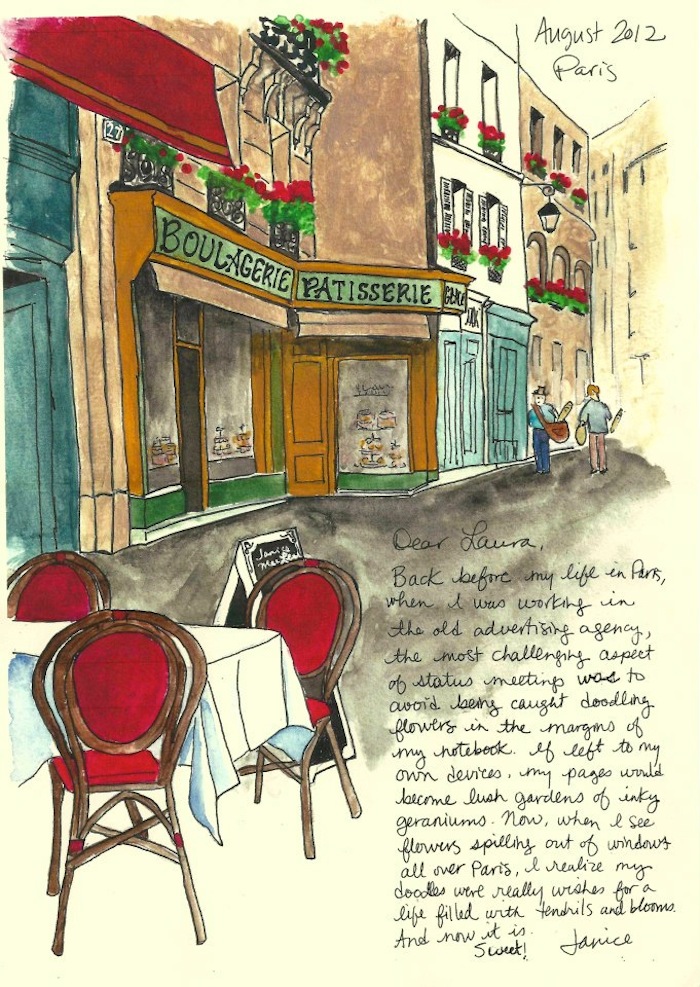 August 2012
Paris
27
BOULAGERIE PATISSERIE
Janice
Dear Laura,
Back before my life in Paris,
when I was working in
the old advertising agency,
the most challenging aspect
of status meetings was to
avoid being caught doodling
flowers in the margins of
my notebook. If left to my
own devices, my pages would
become lush gardens of inky
geraniums. Now, when I see
flowers spilling out of windows
all over Paris, I realize my
doodles were really wishes for a
life filled with tendrils and blooms.
And now it is.
Sweet!
Janice